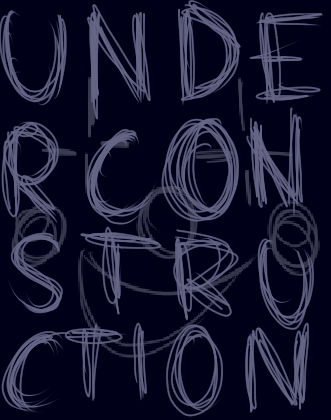 UNDE
RCON
STRU
CTION